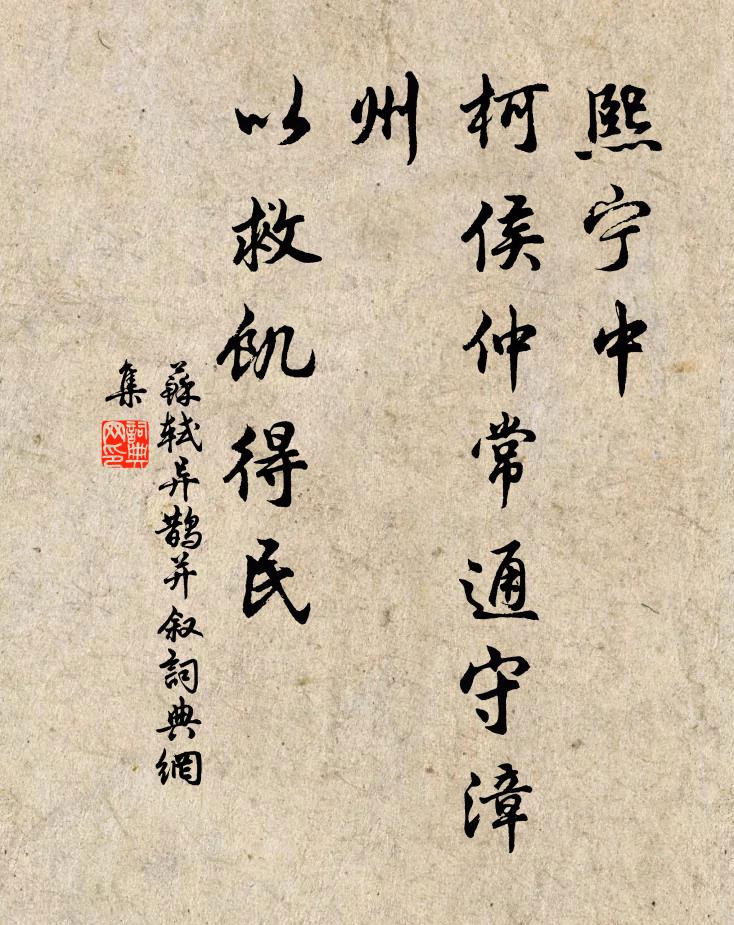 熙宁中
柯侯仲常通守漳
州
以救饥得民
蘇轼异鹊并叙詞典網
集
詞典
网印